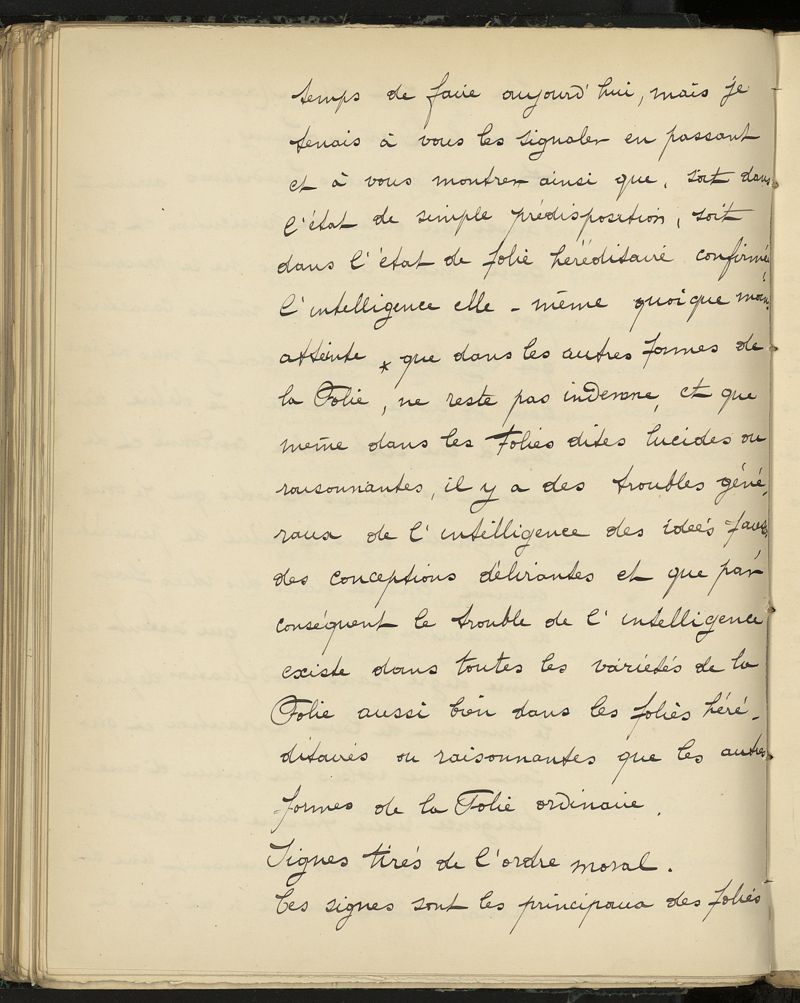 temps de faire aujourd'hui, mais je
tenais à vous les signaler en passant
et à vous montrer ainsi que, soit dans
l'état de simple prédisposition, soit
dans l'état de folie héréditaire confirmée
l'intelligence elle-même quoique moins
atteinte * que dans les autres formes de
la Folie, ne reste pas indemne, et que
même dans les Folies dites lucides ou
raisonnantes, il y a des troubles géné-
raux de l'intelligence des idées fausses
des conceptions délirantes et que par
conséquent le trouble de l'intelligence
existe dans toutes les variétés de la
Folie aussi bien dans les folies héré-
ditaires ou raisonnantes que les autres
formes de la Folie ordinaire.
Signes tirés de l'ordre moral.
Ces signes sont les principaux des folies